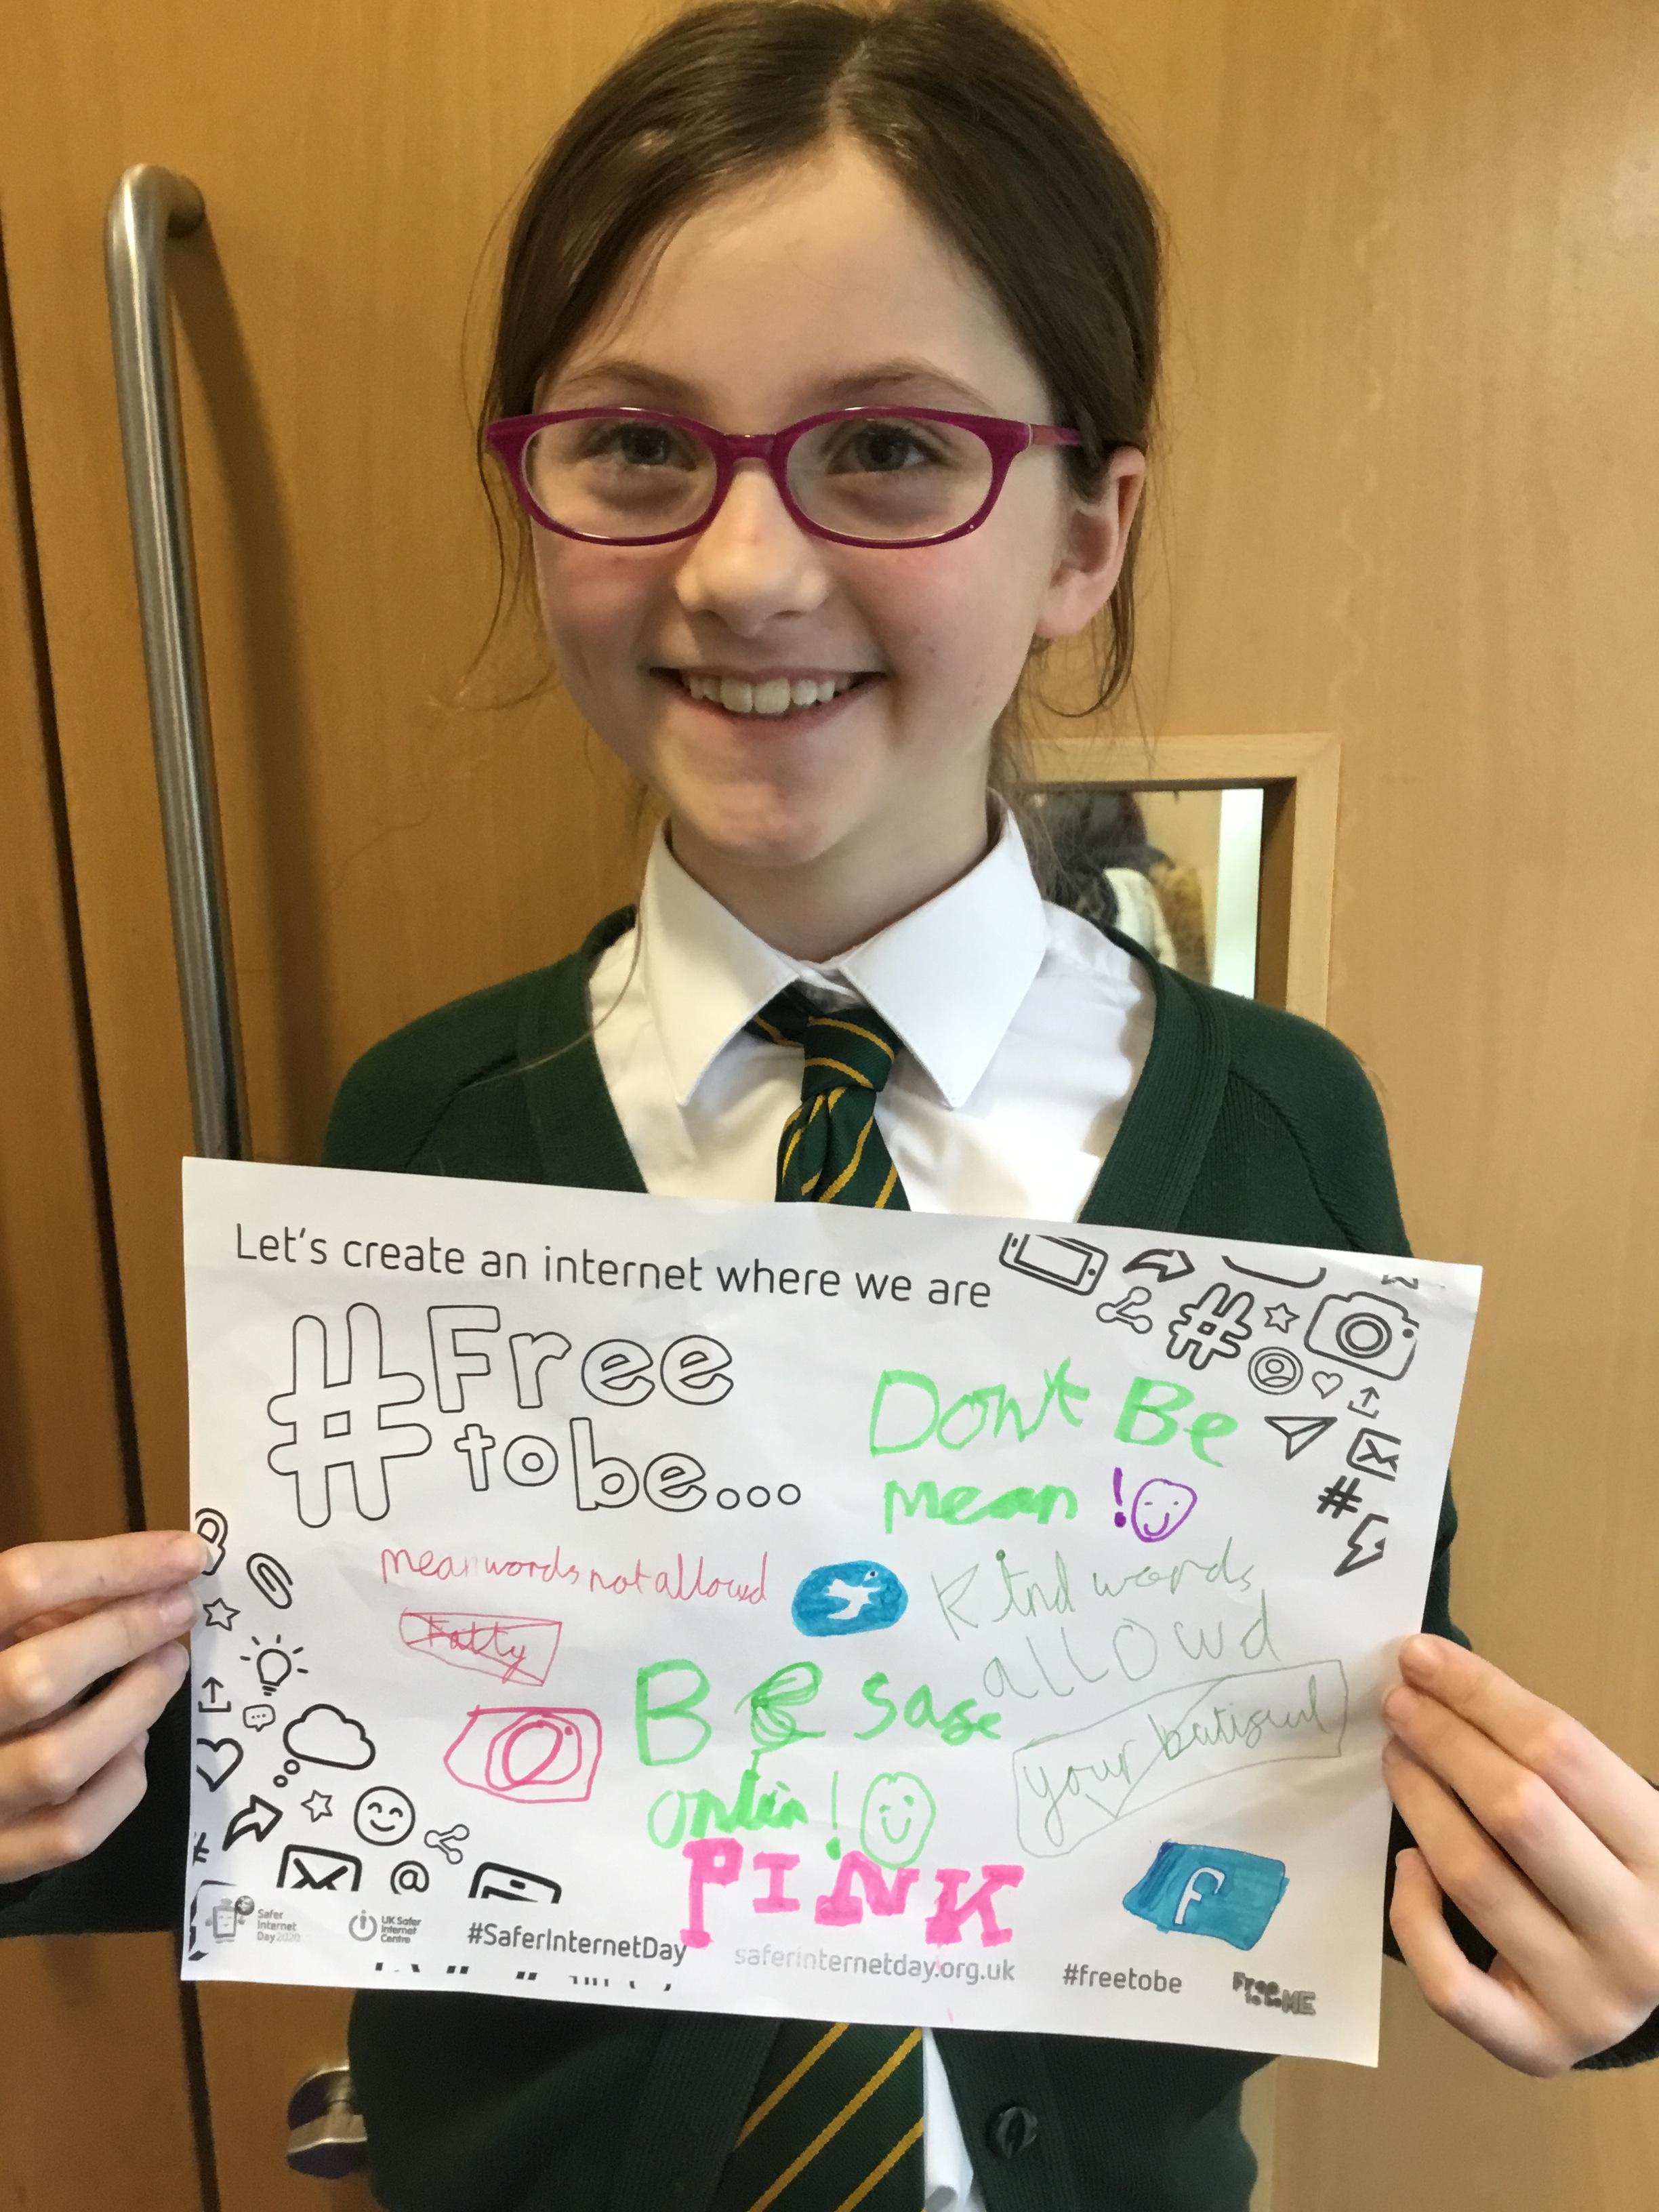 Let's create an internet where we are
#Free
to be...
Dont Be
mean !
mean words not allowed
Fatty
Kind words
allowd
Be safe
onlin!
your butiful
PINK
f
Safer
Internet
Day2020
UK Safer
Internet
Centre
#SaferInternetDay
saferinternetday.org.uk
#freetobe
Free
to be ME